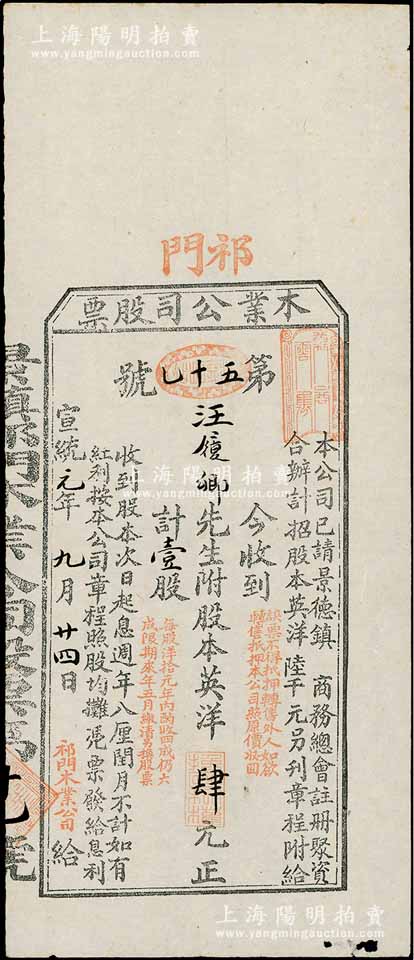 上海陽明拍賣
www.yangmingauction.com
祁門
木業公司股票
第五十七號
本公司已請景德鎮 商務總會註冊聚資
合辦計招股本英洋陸千元另刊章程附給
今收到
該票不得抵押轉售外人如欲
轉售抵押本公司照原價收回
先生附股本英洋肆元正
計壹股
每股洋拾元年內酌收四成仍六
成限期來年五月繳清另換股票
收到股本次日起息週年八厘閏月不計如有
紅利按本公司章程照股均攤憑票發給息利
宣統元年九月廿四日
祁門木業公司
給
上海陽明拍賣
www.yangmingauction.com